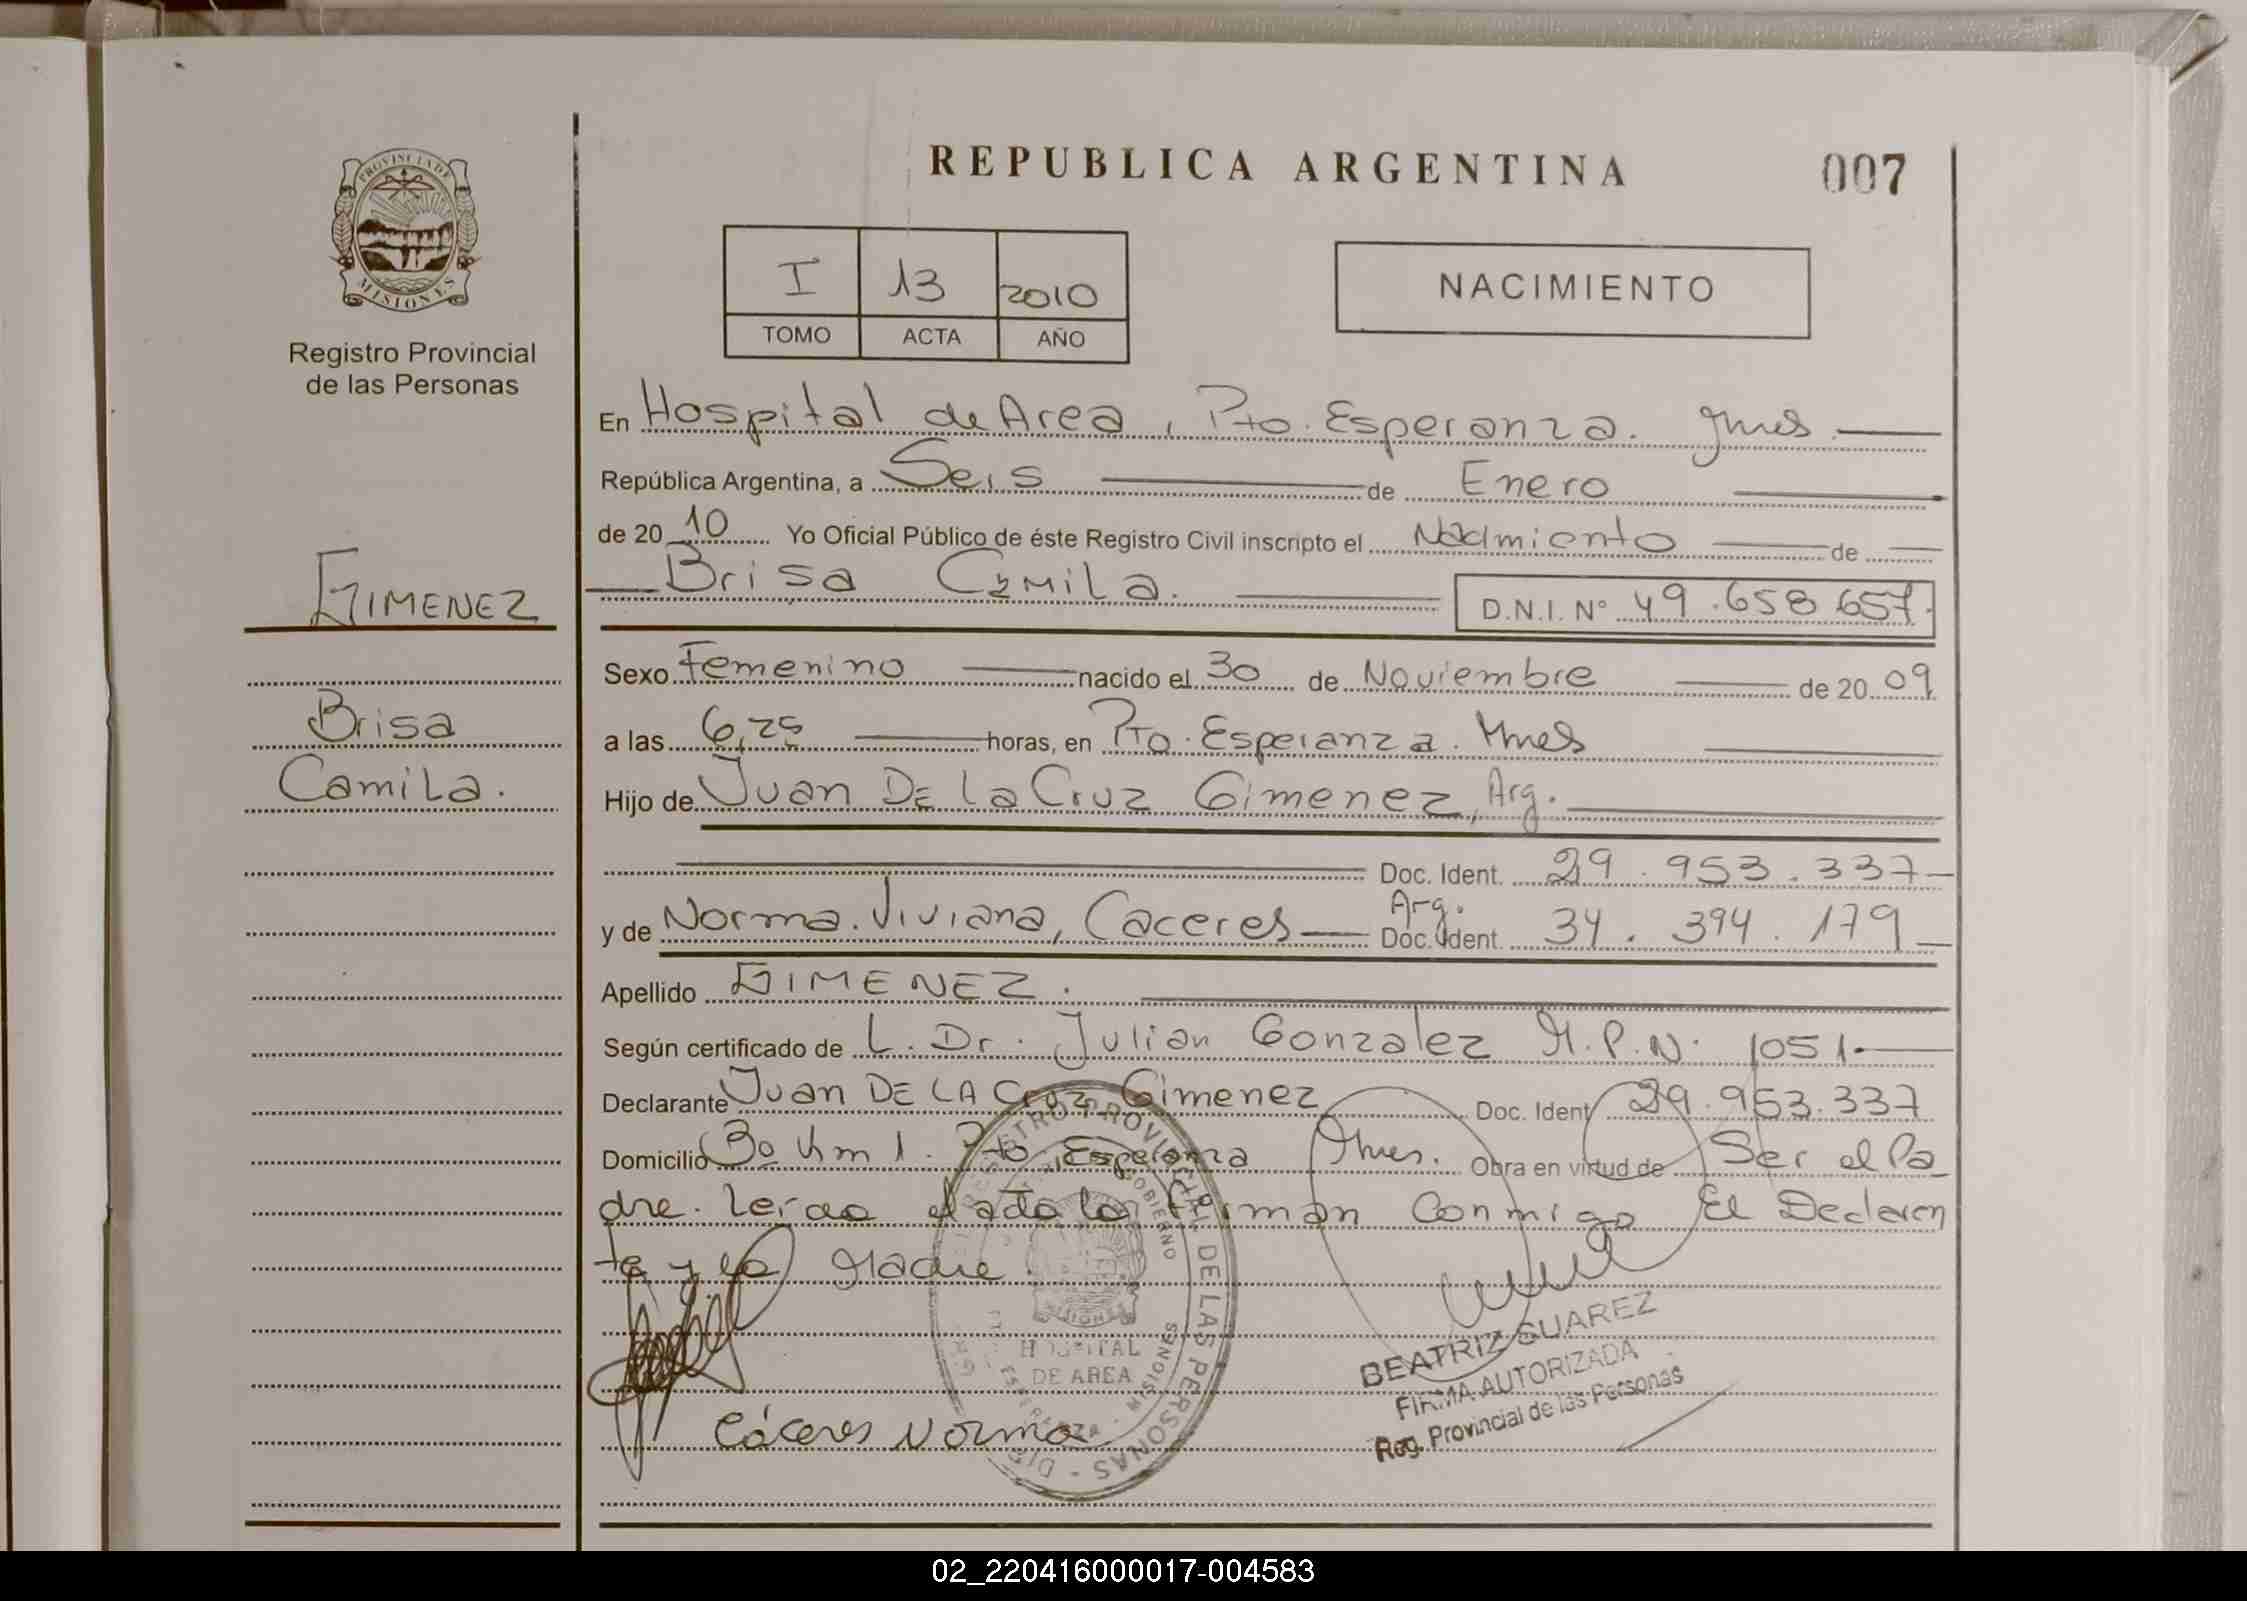 REPUBLICA ARGENTINA
007
PROVINCIA DE
MISIONES
Registro Provincial
de las Personas
I 13 2010
TOMO ACTA AÑO
NACIMIENTO
En Hospital de Area, Pto. Esperanza. Mnes.
República Argentina, a Seis de Enero
de 2010 Yo Oficial Público de éste Registro Civil inscripto el Nacimiento de
Brisa Camila. D.N.I. N° 49.658.657.
GIMENEZ
Brisa
Camila.
Sexo Femenino nacido el 30 de Noviembre de 2009
a las 6,25 horas, en Pto. Esperanza. Mnes
Hijo de Juan De La Cruz Gimenez, Arg.
Doc. Ident. 29.953.337
y de Norma. Viviana, Caceres Arg. Doc. Ident. 34.394.179
Apellido GIMENEZ.
Según certificado de L. Dr. Julian Gonzalez M.P.N. 1051.
Declarante Juan DE LA Cruz Gimenez Doc. Ident 29.953.337
Domicilio Bo Km 1. Pto Esperanza Mnes. Obra en virtud de Ser el Pa
dre. Leída el acta la firman Conmigo El Declaran
te y la Madre.
REGISTRO PROVINCIAL DE LAS PERSONAS
MISIONES
HOSPITAL
DE AREA
Cáceres Norma
BEATRIZ SUAREZ
FIRMA AUTORIZADA
Reg. Provincial de las Personas
02_220416000017-004583